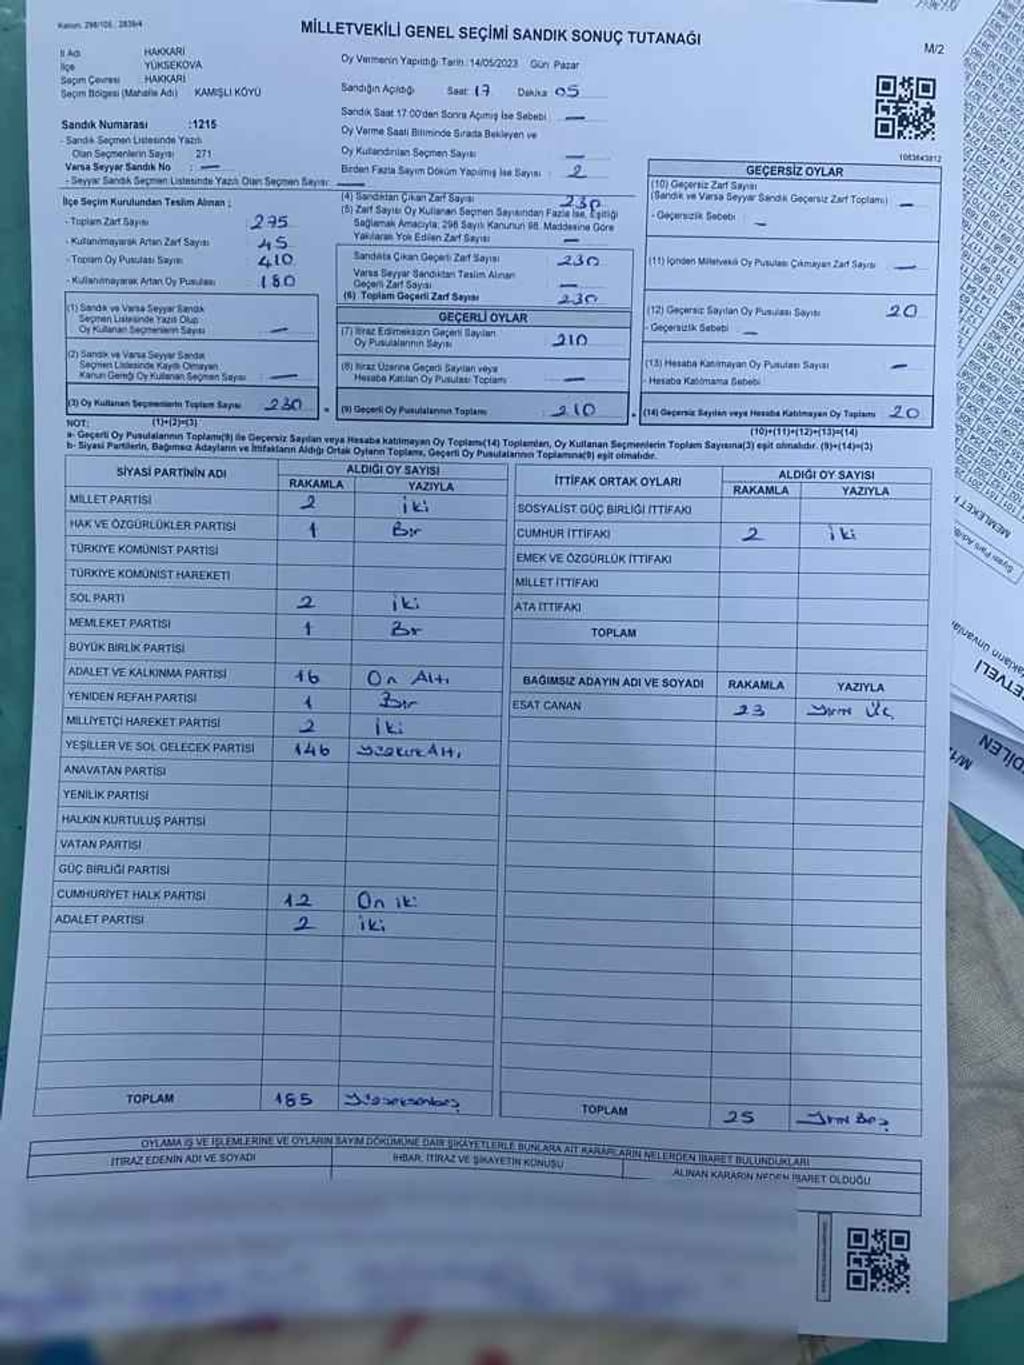 Kanun: 298/105, 2839/4
MİLLETVEKİLİ GENEL SEÇİMİ SANDIK SONUÇ TUTANAĞI
M/2
İl Adı HAKKARİ
İlçe YÜKSEKOVA
Seçim Çevresi HAKKARİ
Seçim Bölgesi (Mahalle Adı) KAMIŞLI KÖYÜ
Sandık Numarası :1215
- Sandık Seçmen Listesinde Yazılı
Olan Seçmenlerin Sayısı 271
Varsa Seyyar Sandık No : —
- Seyyar Sandık Seçmen Listesinde Yazılı Olan Seçmen Sayısı: —
Oy Vermenin Yapıldığı Tarih: 14/05/2023 Gün Pazar
Sandığın Açıldığı Saat: 17 Dakika 05
Sandık Saat 17.00'den Sonra Açılmış İse Sebebi —
Oy Verme Saati Bitiminde Sırada Bekleyen ve
Oy Kullandırılan Seçmen Sayısı —
Birden Fazla Sayım Döküm Yapılmış İse Sayısı : 2
1083643812
İlçe Seçim Kurulundan Teslim Alınan ;
- Toplam Zarf Sayısı 275
- Kullanılmayarak Artan Zarf Sayısı 45
- Toplam Oy Pusulası Sayısı 410
- Kullanılmayarak Artan Oy Pusulası 180
(1) Sandık ve Varsa Seyyar Sandık
Seçmen Listesinde Yazılı Olup
Oy Kullanan Seçmenlerin Sayısı —
(2) Sandık ve Varsa Seyyar Sandık
Seçmen Listesinde Kayıtlı Olmayan
Kanun Gereği Oy Kullanan Seçmen Sayısı —
(3) Oy Kullanan Seçmenlerin Toplam Sayısı 230
(1)+(2)=(3)
(4) Sandıktan Çıkan Zarf Sayısı 230
(5) Zarf Sayısı Oy Kullanan Seçmen Sayısından Fazla İse, Eşitliği
Sağlamak Amacıyla; 298 Sayılı Kanunun 98. Maddesine Göre
Yakılarak Yok Edilen Zarf Sayısı —
Sandıkta Çıkan Geçerli Zarf Sayısı 230
Varsa Seyyar Sandıktan Teslim Alınan
Geçerli Zarf Sayısı —
(6) Toplam Geçerli Zarf Sayısı 230
GEÇERLİ OYLAR
(7) İtiraz Edilmeksizin Geçerli Sayılan
Oy Pusulalarının Sayısı 210
(8) İtiraz Üzerine Geçerli Sayılan veya
Hesaba Katılan Oy Pusulası Toplamı —
(9) Geçerli Oy Pusulalarının Toplamı 210
GEÇERSİZ OYLAR
(10) Geçersiz Zarf Sayısı
(Sandık ve Varsa Seyyar Sandık Geçersiz Zarf Toplamı) —
- Geçersizlik Sebebi : —
(11) İçinden Milletvekili Oy Pusulası Çıkmayan Zarf Sayısı —
(12) Geçersiz Sayılan Oy Pusulası Sayısı 20
- Geçersizlik Sebebi : —
(13) Hesaba Katılmayan Oy Pusulası Sayısı —
- Hesaba Katılmama Sebebi
(14) Geçersiz Sayılan veya Hesaba Katılmayan Oy Toplamı 20
(10)+(11)+(12)+(13)=(14)
NOT:
a- Geçerli Oy Pusulalarının Toplamı(9) ile Geçersiz Sayılan veya Hesaba katılmayan Oy Toplamı(14) Toplamları, Oy Kullanan Seçmenlerin Toplam Sayısına(3) eşit olmalıdır. (9)+(14)=(3)
b- Siyasi Partilerin, Bağımsız Adayların ve İttifakların Aldığı Ortak Oyların Toplamı, Geçerli Oy Pusulalarının Toplamına(9) eşit olmalıdır.
SİYASİ PARTİNİN ADI ALDIĞI OY SAYISI
RAKAMLA YAZIYLA
MİLLET PARTİSİ 2 iki
HAK VE ÖZGÜRLÜKLER PARTİSİ 1 Bir
TÜRKİYE KOMÜNİST PARTİSİ
TÜRKİYE KOMÜNİST HAREKETİ
SOL PARTİ 2 iki
MEMLEKET PARTİSİ 1 Bir
BÜYÜK BİRLİK PARTİSİ
ADALET VE KALKINMA PARTİSİ 16 On Altı
YENİDEN REFAH PARTİSİ 1 Bir
MİLLİYETÇİ HAREKET PARTİSİ 2 iki
YEŞİLLER VE SOL GELECEK PARTİSİ 146 Yüzkırk Altı
ANAVATAN PARTİSİ
YENİLİK PARTİSİ
HALKIN KURTULUŞ PARTİSİ
VATAN PARTİSİ
GÜÇ BİRLİĞİ PARTİSİ
CUMHURİYET HALK PARTİSİ 12 On iki
ADALET PARTİSİ 2 iki
TOPLAM 185 Yüzseksenbeş
İTTİFAK ORTAK OYLARI ALDIĞI OY SAYISI
RAKAMLA YAZIYLA
SOSYALİST GÜÇ BİRLİĞİ İTTİFAKI
CUMHUR İTTİFAKI 2 iki
EMEK VE ÖZGÜRLÜK İTTİFAKI
MİLLET İTTİFAKI
ATA İTTİFAKI
TOPLAM
BAĞIMSIZ ADAYIN ADI VE SOYADI RAKAMLA YAZIYLA
ESAT CANAN 23 Yirmi Üç
TOPLAM 25 Yirmi Beş
OYLAMA İŞ VE İŞLEMLERİNE VE OYLARIN SAYIM DÖKÜMÜNE DAİR ŞİKAYETLERLE BUNLARA AİT KARARLARIN NELERDEN İBARET BULUNDUKLARI
İTİRAZ EDENİN ADI VE SOYADI İHBAR, İTİRAZ VE ŞİKAYETİN KONUSU ALINAN KARARIN NEDEN İBARET OLDUĞU